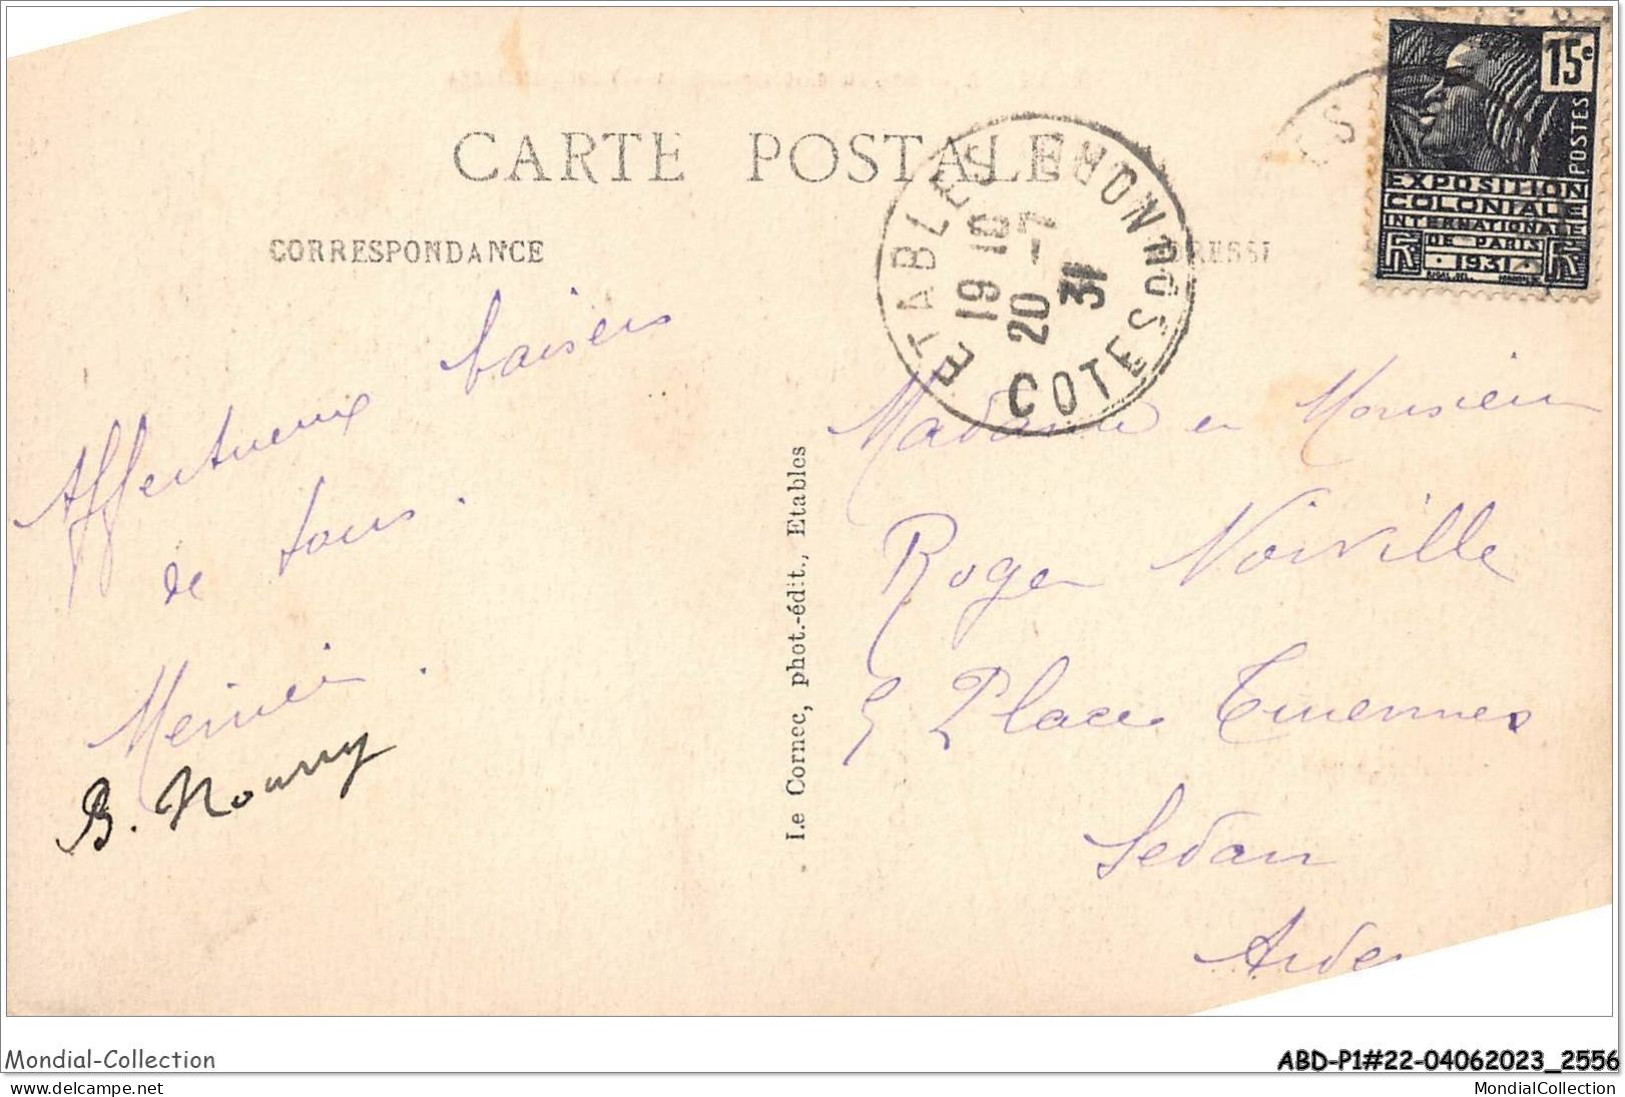 CARTE POSTALE
CORRESPONDANCE
ETABLES
19 10
20 -7
31
COTES DU NORD
15c
POSTES
EXPOSITION
COLONIALE
INTERNATIONALE
DE PARIS
1931
Affectueux baisers
de tous.
B. Nourry
Le Cornec, phot.-édit., Etables
Madame et Monsieur
Roger Noirville
5 Place Turennes
Sedan
Mondial-Collection
ABD-P1#22-04062023_2556
www.delcampe.net
MondialCollection